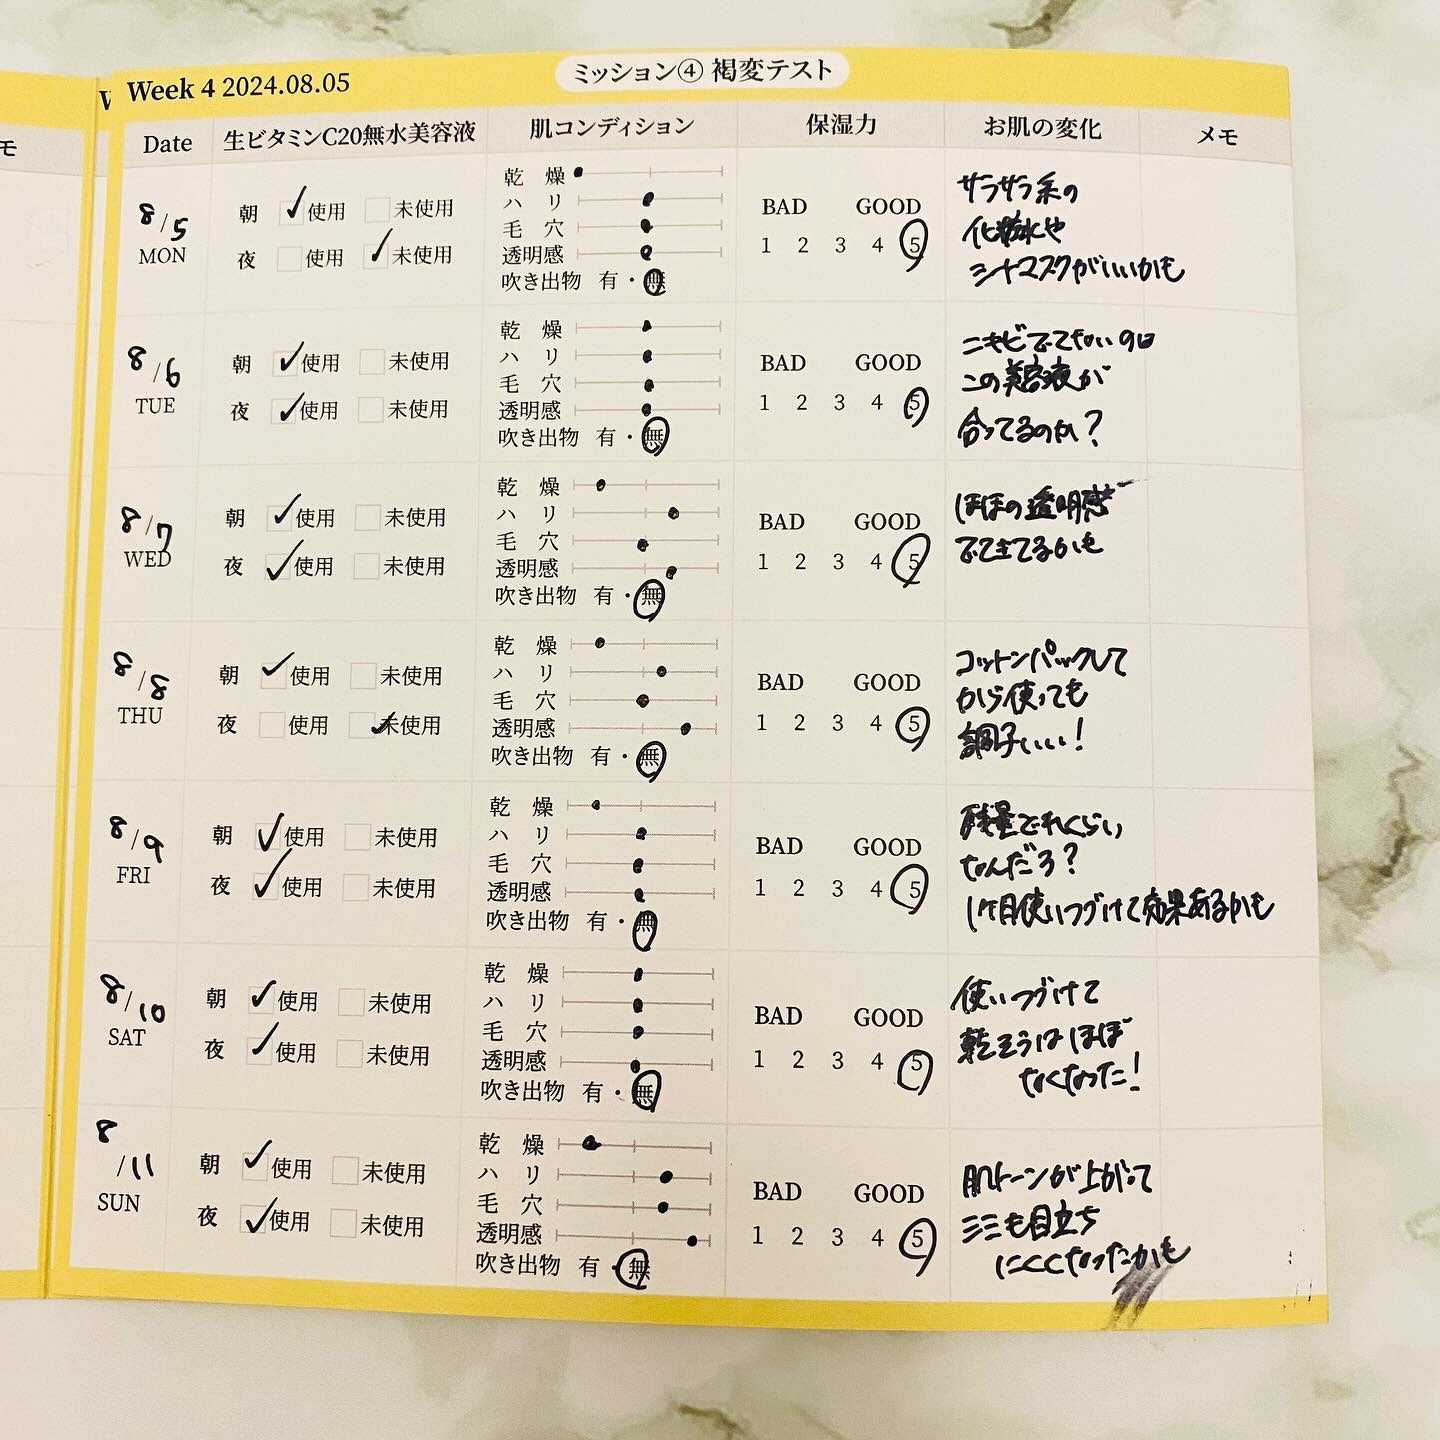 モ
Week 4 2024.08.05
ミッション④ 褐変テスト
Date 生ビタミンC20無水美容液 肌コンディション 保湿力 お肌の変化 メモ
8/5
MON
朝 ✓使用 未使用
夜 使用 ✓未使用
乾 燥
ハ リ
毛 穴
透明感
吹き出物 有・無
BAD GOOD
1 2 3 4 5
サラサラ系の
化粧水や
シートマスクがいいかも
8/6
TUE
朝 ✓使用 未使用
夜 ✓使用 未使用
乾 燥
ハ リ
毛 穴
透明感
吹き出物 有・無
BAD GOOD
1 2 3 4 5
ニキビでてないのは
この美容液が
合ってるのか?
8/7
WED
朝 ✓使用 未使用
夜 ✓使用 未使用
乾 燥
ハ リ
毛 穴
透明感
吹き出物 有・無
BAD GOOD
1 2 3 4 5
ほほの透明感
でてきてるかも
8/8
THU
朝 ✓使用 未使用
夜 使用 ✓未使用
乾 燥
ハ リ
毛 穴
透明感
吹き出物 有・無
BAD GOOD
1 2 3 4 5
コットンパックして
から使っても
調子いいい!
8/9
FRI
朝 ✓使用 未使用
夜 ✓使用 未使用
乾 燥
ハ リ
毛 穴
透明感
吹き出物 有・無
BAD GOOD
1 2 3 4 5
残量どれくらい
なんだろ?
1ヶ月使いつづけて効果あるかも
8/10
SAT
朝 ✓使用 未使用
夜 ✓使用 未使用
乾 燥
ハ リ
毛 穴
透明感
吹き出物 有・無
BAD GOOD
1 2 3 4 5
使いつづけて
乾そうはほぼ
なくなった!
8/11
SUN
朝 ✓使用 未使用
夜 ✓使用 未使用
乾 燥
ハ リ
毛 穴
透明感
吹き出物 有・無
BAD GOOD
1 2 3 4 5
肌トーンが上がって
シミも目立ち
にくくなったかも